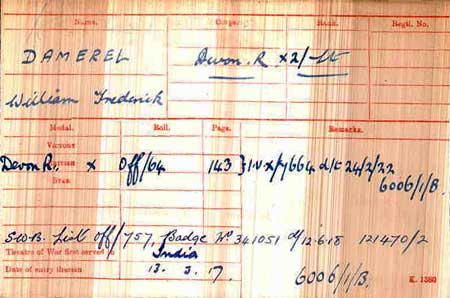 Name. Corps. Rank. Regtl. No.
DAMEREL Devon. R x 2/Lt
William Frederick
Medal. Roll. Page. Remarks.
VICTORY
Devon R. x BRITISH Off/64 143 } I.V.X/7664 d/d 24/2/22
STAR 6006/1/B.
S.W.B. List Off/757, Badge No 341051 d/12.6.18 121470/2
Theatre of War first served in India
Date of entry therein 13. 3. 17. 6006/1/B.
K. 1380